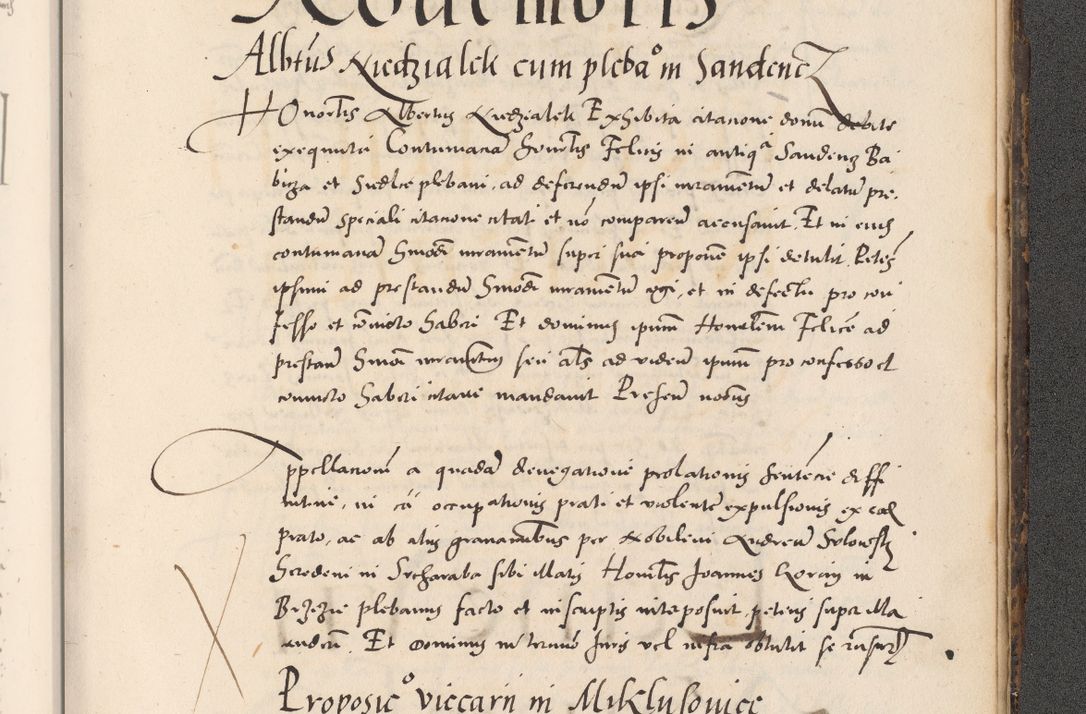 Nouembris
Albtus Niedzialek cum plebano in Sandencz
Honorlis Albertus Niedzialek Exhibita citacione domi debite
exequuta Contumaciam honorlis Felicis in antiqa Sandencz Ba
bicza et Siedlce plebani, ad deferendum ipsi iuramentum et delatum pre-
standum speciali citacione citati et non comparen accusauit. Et in eius
contumaciam hmodi iuramentum supri sua propone ipsi detulit. Peten
ipsum ad prestandum hmodi iuramentum cogi, et in defectu pro con
fesso et conuicto haberi Et dominus ipsum Honorlem Felicem ad
prestan hmoi iuramentum seu als ad viden ipsum pro confesso et
conuicto haberi citare mandauit Presen nobus
Appellacionem a quadam denegatione prolationis sententie diffi
nitiue, in ca occupationis prati et violente expulsionis ex eod
prato, ac ab aliis grauaminibus per Nobilem Andream
heredem in sibi illatis Honorlis Joannes in
Brzezie plebanus facto et in scriptis interposuit, petens super illa
Et Dominus in termino Juris vel infra obtulit se
Proposicio viccarii in Miklusouice